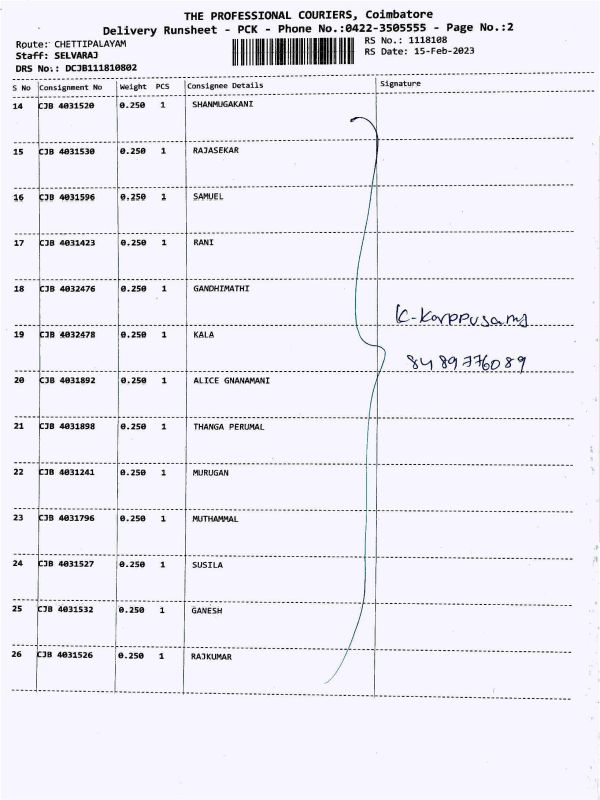 THE PROFESSIONAL COURIERS, Coimbatore
Delivery Runsheet - PCK - Phone No.:0422-3505555 - Page No.:2
Route: CHETTIPALAYAM
RS No.: 1118108
Staff: SELVARAJ
RS Date: 15-Feb-2023
DRS No.: DCJB111810802
S No Consignment No Weight PCS Consignee Details Signature
14 CJB 4031520 0.250 1 SHANMUGAKANI
15 CJB 4031530 0.250 1 RAJASEKAR
16 CJB 4031596 0.250 1 SAMUEL
17 CJB 4031423 0.250 1 RANI
18 CJB 4032476 0.250 1 GANDHIMATHI
K-Karppusamy
19 CJB 4032478 0.250 1 KALA
8489776089
20 CJB 4031892 0.250 1 ALICE GNANAMANI
21 CJB 4031898 0.250 1 THANGA PERUMAL
22 CJB 4031241 0.250 1 MURUGAN
23 CJB 4031796 0.250 1 MUTHAMMAL
24 CJB 4031527 0.250 1 SUSILA
25 CJB 4031532 0.250 1 GANESH
26 CJB 4031526 0.250 1 RAJKUMAR